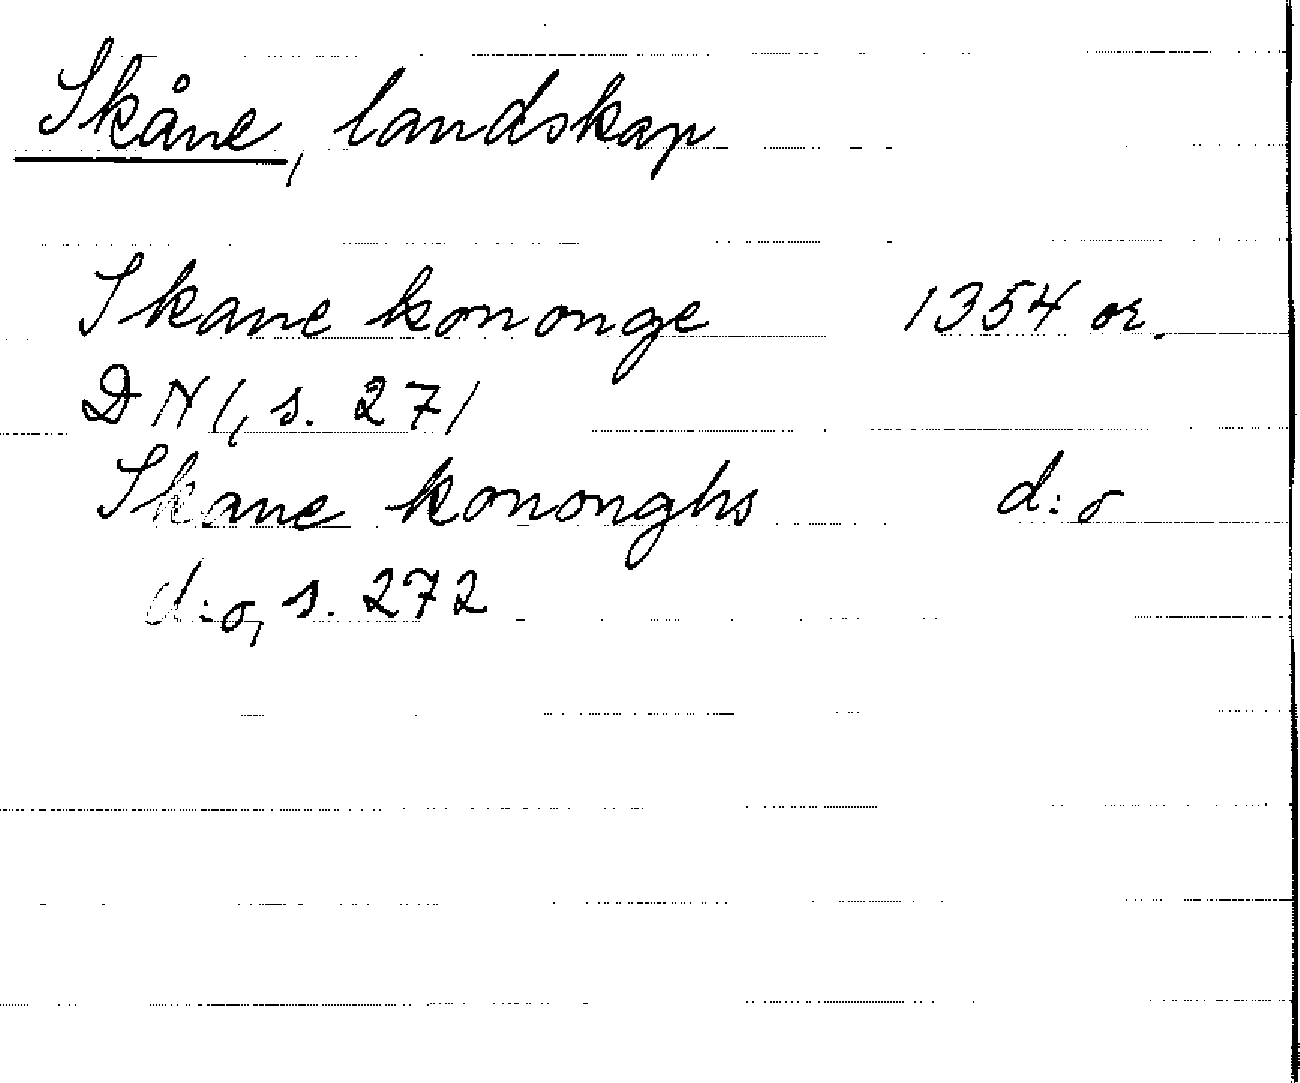 Skåne, landskap
Skane kononge 1354 or.
DN 1, s. 271
Skane kononghs d:o
d:o, s. 272